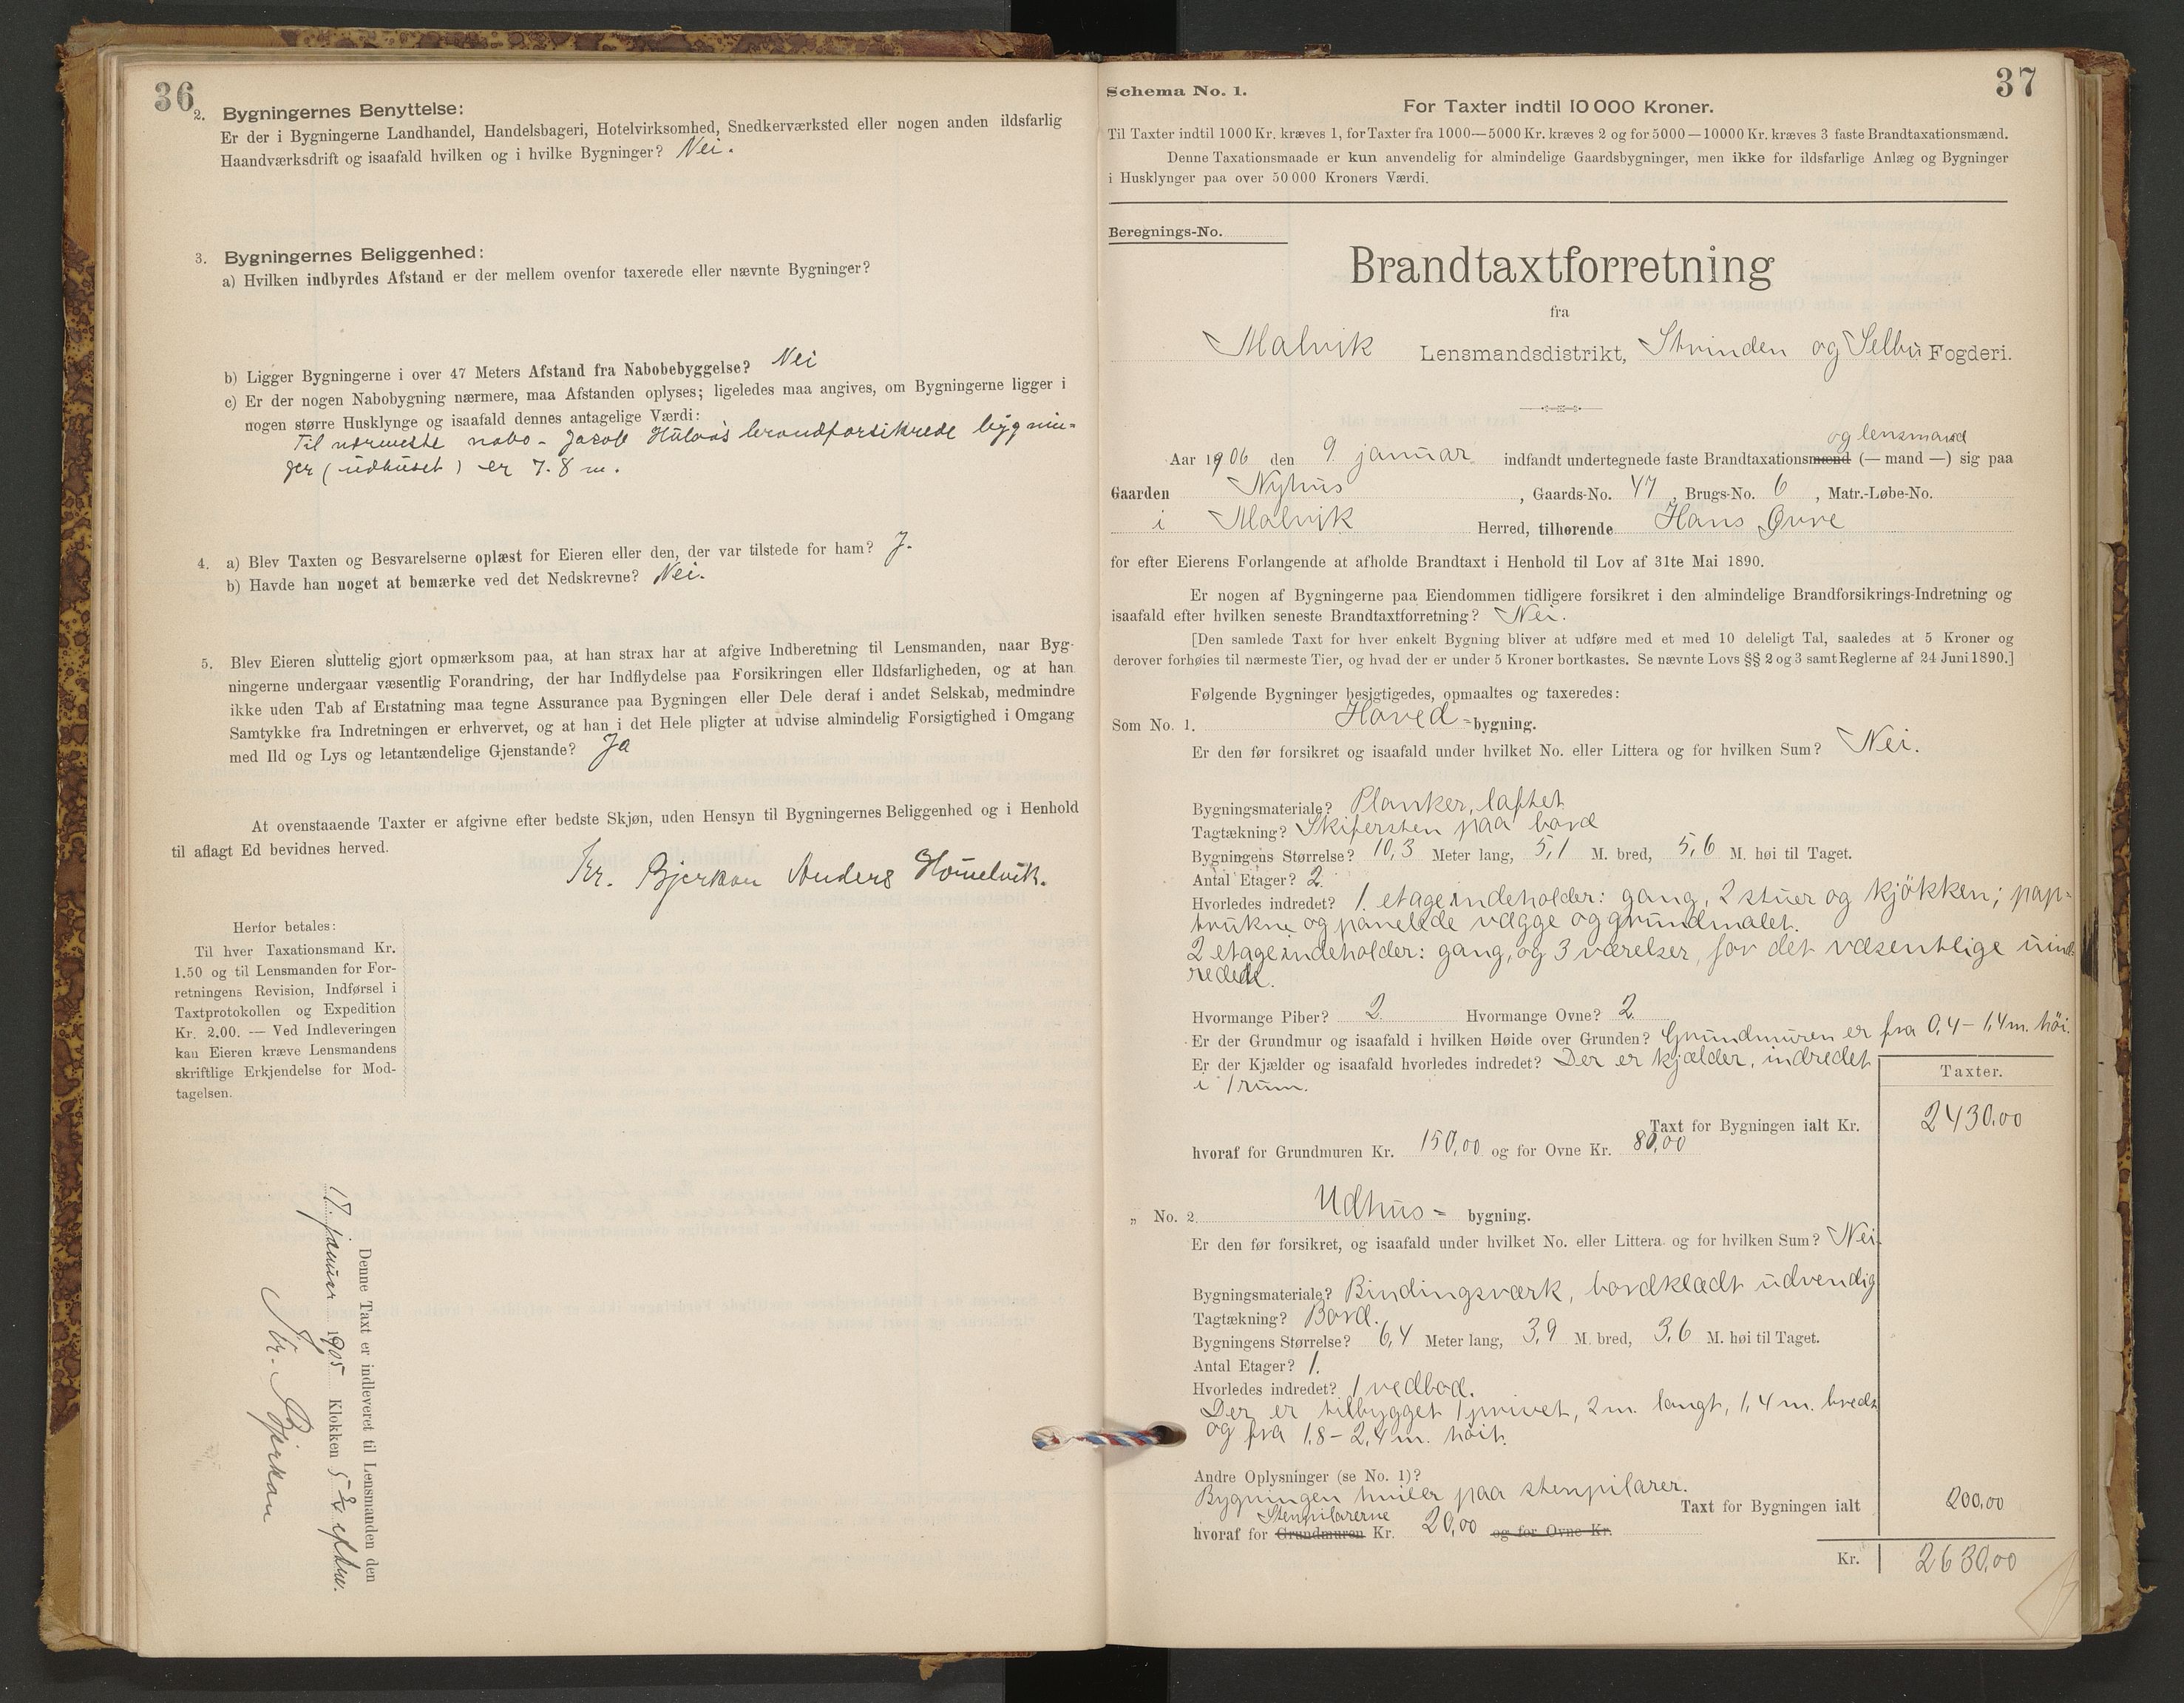 36
2. Bygningernes Benyttelse:
Er der i Bygningerne Landhandel, Handelsbageri, Hotelvirksomhed, Snedkerværksted eller nogen anden ildsfarlig
Haandværksdrift og isaafald hvilken og i hvilke Bygninger? Nei.
3. Bygningernes Beliggenhed:
a) Hvilken indbyrdes Afstand er der mellem ovenfor taxerede eller nævnte Bygninger?
b) Ligger Bygningerne i over 47 Meters Afstand fra Nabobebyggelse? Nei
c) Er der nogen Nabobygning nærmere, maa Afstanden oplyses; ligeledes maa angives, om Bygningerne ligger i
nogen større Husklynge og isaafald dennes antagelige Værdi:
Til nærmeste nabo - Jacob Hulaas brandforsikrede bygnin-
ger (udhuset) er 7.8 m.
4. a) Blev Taxten og Besvarelserne oplæst for Eieren eller den, der var tilstede for ham? J.
b) Havde han noget at bemærke ved det Nedskrevne? Nei.
5. Blev Eieren sluttelig gjort opmærksom paa, at han strax har at afgive Indberetning til Lensmanden, naar Byg-
ningerne undergaar væsentlig Forandring, der har Indflydelse paa Forsikringen eller Ildsfarligheden, og at han
ikke uden Tab af Erstatning maa tegne Assurance paa Bygningen eller Dele deraf i andet Selskab, medmindre
Samtykke fra Indretningen er erhvervet, og at han i det Hele pligter at udvise almindelig Forsigtighed i Omgang
med Ild og Lys og letantændelige Gjenstande? Ja
At ovenstaaende Taxter er afgivne efter bedste Skjøn, uden Hensyn til Bygningernes Beliggenhed og i Henhold
til aflagt Ed bevidnes herved.
Kr. Bjerkan Anders Homelvik.
Herfor betales:
Til hver Taxationsmand Kr.
1.50 og til Lensmanden for For-
retningens Revision, Indførsel i
Taxtprotokollen og Expedition
Kr. 2.00. — Ved Indleveringen
kan Eieren kræve Lensmandens
skriftlige Erkjendelse for Mod-
tagelsen.
Denne Taxt er indleveret til Lensmanden den
17. januar 1905 Klokken 5 efter.
Kr. Bjerkan
37
Schema No. 1.
For Taxter indtil 10 000 Kroner.
Til Taxter indtil 1000 Kr. kræves 1, for Taxter fra 1000—5000 Kr. kræves 2 og for 5000—10000 Kr. kræves 3 faste Brandtaxationsmænd.
Denne Taxationsmaade er kun anvendelig for almindelige Gaardsbygninger, men ikke for ildsfarlige Anlæg og Bygninger
i Husklynger paa over 50 000 Kroners Værdi.
Beregnings-No.
Brandtaxtforretning
fra
Malvik Lensmandsdistrikt, Strinden og Selbu Fogderi.
og lensmand
Aar 1906 den 9. januar indfandt undertegnede faste Brandtaxationsmænd (— mand —) sig paa
Gaarden Nyhus, Gaards-No. 47, Brugs-No. 6, Matr.-Løbe-No.
i Malvik Herred, tilhørende Hans Øvre
for efter Eierens Forlangende at afholde Brandtaxt i Henhold til Lov af 31te Mai 1890.
Er nogen af Bygningerne paa Eiendommen tidligere forsikret i den almindelige Brandforsikrings-Indretning og
isaafald efter hvilken seneste Brandtaxtforretning? Nei.
[Den samlede Taxt for hver enkelt Bygning bliver at udføre med et med 10 deleligt Tal, saaledes at 5 Kroner og
derover forhøies til nærmeste Tier, og hvad der er under 5 Kroner bortkastes. Se nævnte Lovs §§ 2 og 3 samt Reglerne af 24 Juni 1890.]
Følgende Bygninger besigtigedes, opmaaltes og taxeredes:
Som No. 1. Hoved-bygning.
Er den før forsikret og isaafald under hvilket No. eller Littera og for hvilken Sum? Nei.
Bygningsmateriale? Planker, laftet
Tagtækning? Skifersten paa bord
Bygningens Størrelse? 10,3 Meter lang, 5,1 M. bred, 5,6 M. høi til Taget.
Antal Etager? 2.
Hvorledes indredet? 1. etage indeholder: gang, 2 stuer og kjøkken; pap-
trukne og panelede vægge og grundmalet.
2 etage indeholder: gang, og 3 værelser, for det væsentlige uind-
redede.
Hvormange Piber? 2. Hvormange Ovne? 2.
Er der Grundmur og isaafald i hvilken Høide over Grunden? Grundmuren er fra 0,4 – 1,4 m. høi.
Er der Kjælder og isaafald hvorledes indredet? Der er kjælder, indredet
i 1 rum.
Taxter.
Taxt for Bygningen ialt Kr. 2430,00
hvoraf for Grundmuren Kr. 150,00 og for Ovne Kr. 80,00
„ No. 2. Udhus- bygning.
Er den før forsikret, og isaafald under hvilket No. eller Littera og for hvilken Sum? Nei.
Bygningsmateriale? Bindingsværk, bordklædt udvendig
Tagtækning? Bord.
Bygningens Størrelse? 6,4 Meter lang, 3,9 M. bred, 3,6 M. høi til Taget.
Antal Etager? 1.
Hvorledes indredet? 1 vedbod.
Der er tilbygget 1 privet, 2 m. langt, 1,4 m. bredt
og fra 1,8 – 2,4 m. høit.
Andre Oplysninger (se No. 1)?
Bygningen hviler paa stenpilarer.
Taxt for Bygningen ialt 200,00
Stenpilarerne
hvoraf for Grundmuren Kr. 20,00 og for Ovne Kr.
Kr. 2630,00